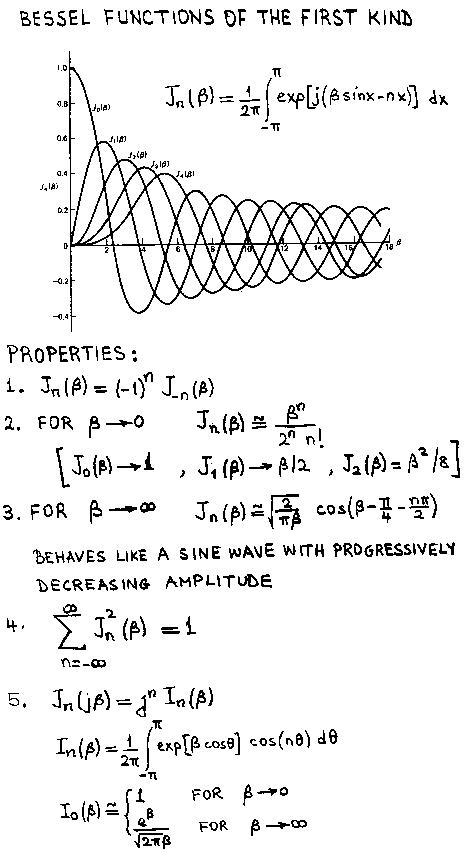 BESSEL FUNCTIONS OF THE FIRST KIND
Jₙ(β) = 1/2π ∫_{-π}^{π} exp[j(β sinx-nx)] dx
1.0
J₀(β)
0.8
0.6
J₁(β)
J₂(β)
J₃(β)
J₄(β)
Jₙ(β)
0.4
0.2
0
2 4 6 8 10 12 14 16 18 β
-0.2
-0.4
PROPERTIES:
1. Jₙ(β) = (-1)ⁿ J₋ₙ(β)
2. FOR β→0 Jₙ(β) ≅ βⁿ/2ⁿ n!
[J₀(β)→1 , J₁(β)→β/2 , J₂(β)=β²/8]
3. FOR β→∞ Jₙ(β) ≅ √(2/πβ) cos(β-π/4-nπ/2)
BEHAVES LIKE A SINE WAVE WITH PROGRESSIVELY
DECREASING AMPLITUDE
4. ∑_{n=-∞}^{∞} Jₙ²(β) = 1
5. Jₙ(jβ) = jⁿ Iₙ(β)
Iₙ(β) = 1/2π ∫_{-π}^{π} exp[β cosθ] cos(nθ) dθ
I₀(β) ≅ { 1 FOR β→0
e^β/√(2πβ) FOR β→∞